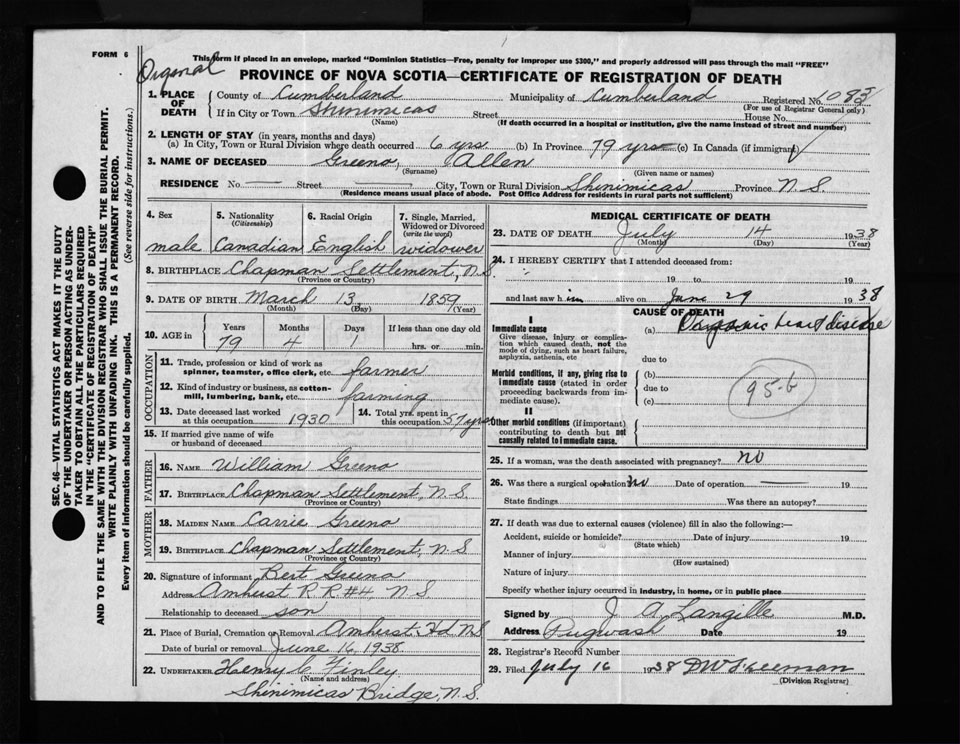 FORM 6
This form if placed in an envelope, marked "Dominion Statistics—Free, penalty for improper use $300," and properly addressed will pass through the mail "FREE"
Orginal
PROVINCE OF NOVA SCOTIA—CERTIFICATE OF REGISTRATION OF DEATH
1. PLACE OF DEATH
County of Cumberland Municipality of Cumberland Registered No. 1083
(For use of Registrar General only)
If in City or Town Shinimicas Street House No.
(Name) (If death occurred in a hospital or institution, give the name instead of street and number)
2. LENGTH OF STAY (in years, months and days)
(a) In City, Town or Rural Division where death occurred 6 yrs. (b) In Province 79 yrs (c) In Canada (if immigrant)
3. NAME OF DECEASED Greeno Allen
(Surname) (Given name or names)
RESIDENCE No. — Street — City, Town or Rural Division Shinimicas Province N.S.
(Residence means usual place of abode. Post Office Address for residents in rural parts not sufficient)
4. Sex
male
5. Nationality
(Citizenship)
Canadian
6. Racial Origin
English
7. Single, Married,
Widowed or Divorced
(write the word)
widower
8. BIRTHPLACE Chapman Settlement, N.S.
(Province or Country)
9. DATE OF BIRTH March 13 1859
(Month) (Day) (Year)
10. AGE in
Years Months Days If less than one day old
79 4 1 hrs. or min.
OCCUPATION
11. Trade, profession or kind of work as
spinner, teamster, office clerk, etc. farmer
12. Kind of industry or business, as cotton-
mill, lumbering, bank, etc. farming
13. Date deceased last worked
at this occupation 1930
14. Total yrs. spent in
this occupation 57 yrs
15. If married give name of wife
or husband of deceased
FATHER
16. NAME William Greeno
17. BIRTHPLACE Chapman Settlement, N.S.
(Province or Country)
MOTHER
18. MAIDEN NAME Carrie Greeno
19. BIRTHPLACE Chapman Settlement, N.S.
(Province or Country)
20. Signature of informant Bert Greeno
Address Amherst R.R. #4, N.S
Relationship to deceased son
21. Place of Burial, Cremation or Removal Amherst, N.S
Date of burial or removal June 16, 1938
22. UNDERTAKER Henry C Finley
(Name and address)
Shinimicas Bridge, N.S.
MEDICAL CERTIFICATE OF DEATH
23. DATE OF DEATH July 14 1938
(Month) (Day) (Year)
24. I HEREBY CERTIFY that I attended deceased from:
19 to 19
and last saw him alive on June 29 1938
CAUSE OF DEATH
I
Immediate cause
Give disease, injury or complica-
tion which caused death, not the
mode of dying, such as heart failure,
asphyxia, asthenia, etc
(a) Organic heart disease
due to
Morbid conditions, if any, giving rise to
immediate cause (stated in order
proceeding backwards from im-
mediate cause).
(b)
due to
(c)
95-b
II
Other morbid conditions (if important)
contributing to death but not
causally related to immediate cause.
25. If a woman, was the death associated with pregnancy? no
26. Was there a surgical operation? no Date of operation — 19
State findings Was there an autopsy?
27. If death was due to external causes (violence) fill in also the following:—
Accident, suicide or homicide? Date of injury 19
(State which)
Manner of injury
(How sustained)
Nature of injury
Specify whether injury occurred in industry, in home, or in public place
Signed by J. A. Langille M.D.
Address Pugwash Date 19
28. Registrar's Record Number
29. Filed July 16 1938
(Division Registrar)
SEC. 46—VITAL STATISTICS ACT MAKES IT THE DUTY
OF THE UNDERTAKER OR PERSON ACTING AS UNDER-
TAKER TO OBTAIN ALL THE PARTICULARS REQUIRED
IN THE "CERTIFICATE OF REGISTRATION OF DEATH"
AND TO FILE THE SAME WITH THE DIVISION REGISTRAR WHO SHALL ISSUE THE BURIAL PERMIT.
WRITE PLAINLY WITH UNFADING INK. THIS IS A PERMANENT RECORD.
Every item of information should be carefully supplied. (See reverse side for instructions.)